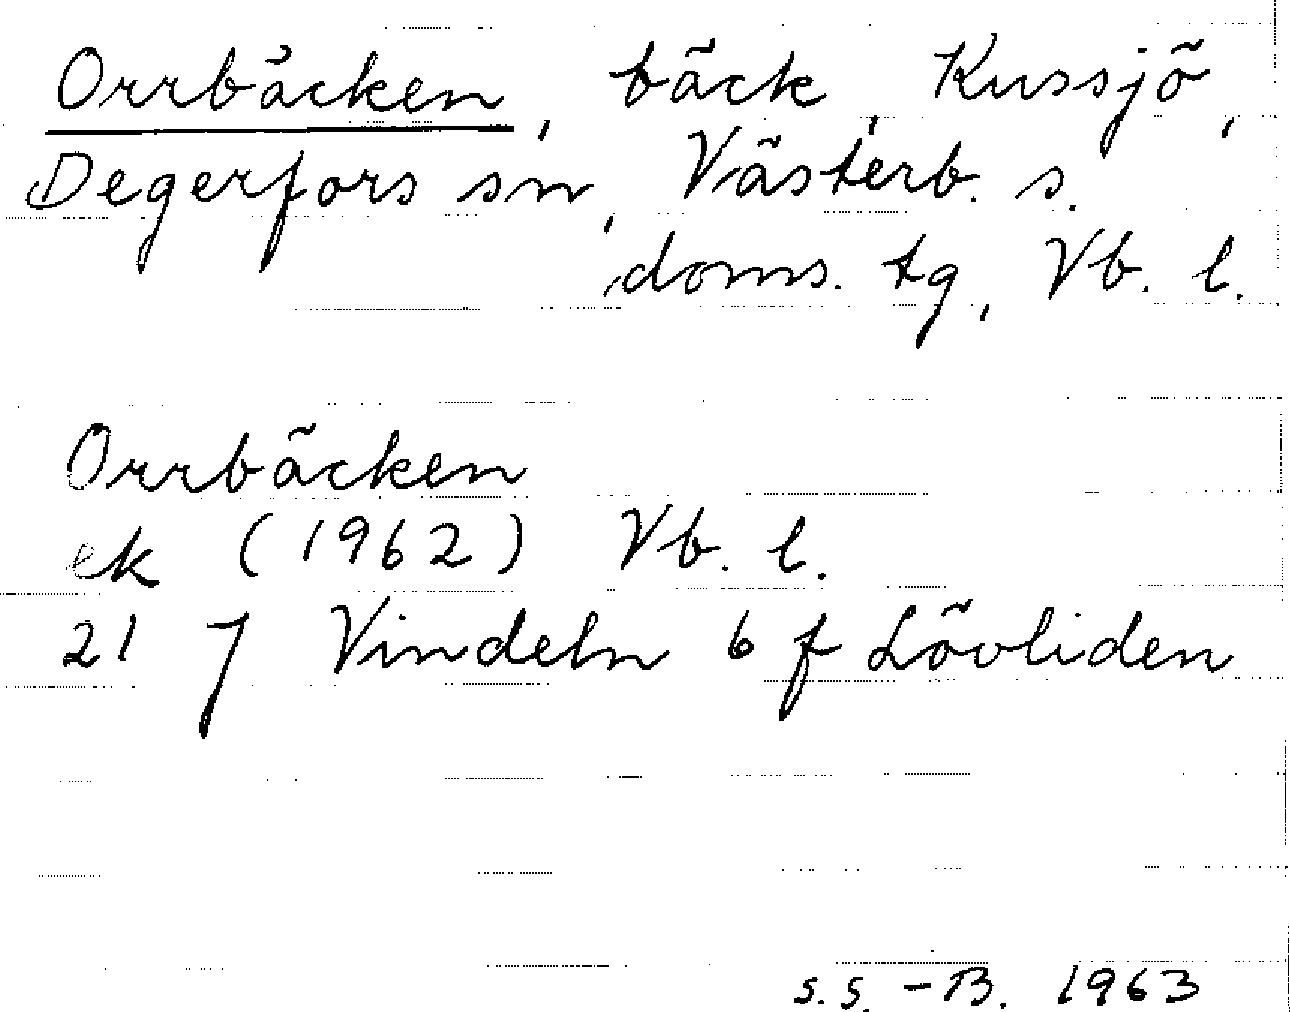 Orrbäcken, bäck, Kussjö,
Degerfors sn, Västerb. s.
doms. tg, Vb. l.
Orrbäcken
ek (1962) Vb. l.
21 J Vindeln 6 f Lövliden
S.S. - B. 1963